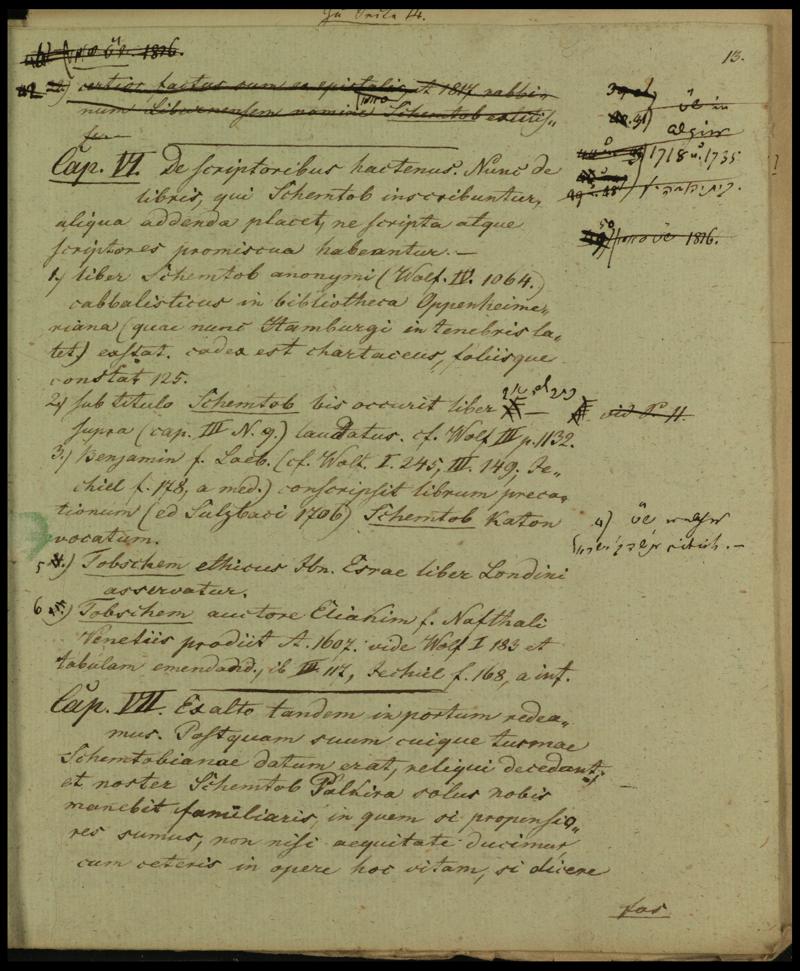 Zu Seite 14.
13.
1816.
certior factus sum ex epistolis, A 1817 rabbi-
num Liburnensem nomine Schemtob extitis-
se.
Cap. VI. De scriptoribus hactenus. Nunc de
libris, qui Schemtob inscribuntur,
aliqua addenda placet, ne scripta atque
scriptores promiscua habeantur. —
1718 u. 1735
1816.
1.) liber Schemtob anonymi (Wolf. IV. 1064.)
cabbalisticus in bibliotheca Oppenheime-
riana (quae nunc Hamburgi in tenebris la-
tet) exstat. codex est chartaceus, foliisque
constat 125.
2.) sub titulo Schemtob bis occurit liber
supra (cap. III N. 9.) laudatus. cf. Wolf III p. 1132.
3.) Benjamin f. Loeb. (cf. Wolf. I. 245, III. 149, Je-
chiel f. 178, a med.) conscripsit librum preca-
tionum (ed Sulzbaci 1706) Schemtob Katon
vocatum.
4)
5 .) Tobschem ethicus Ibn. Esrae liber Londini
asservatur.
6 .) Tobschem auctore Eliakim f. Nafthali
Venetiis prodiit A. 1607. vide Wolf I 183 et
tabulam emendand., ib III 117, Jechiel f. 168, a inf.
Cap. VII. Ex alto tandem in portum redea-
mus. Postquam suum cuique turmae
Schemtobianae datum erat, reliqui decedant,
et noster Schemtob Palkira solus nobis
manebit familiaris, in quem si propensio-
res sumus, non nisi aequitate ducimur
cum ceteris in opere hoc vitam, si dicere
fas